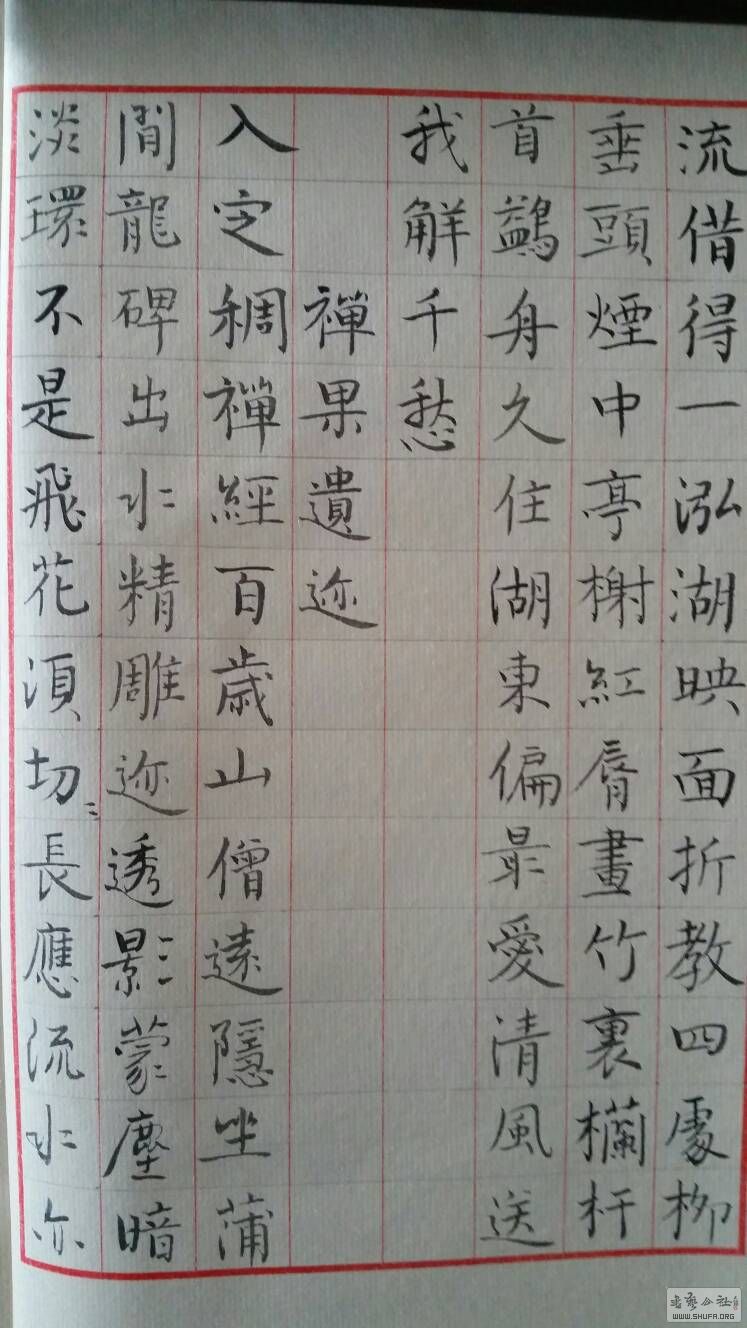 流借得一泓湖映面折教四處柳
垂頭煙中亭榭紅脣畫竹裏欄杆
首鷁舟久住湖東偏最愛清風送
我解千愁
禪果遺迹
入定稠禪經百歲山僧遠隱坐蒲
間龍碑出水精雕迹透影蒙塵暗
淡環不是飛花須切切長應流水亦
書藝公社
WWW.SHUFA.ORG